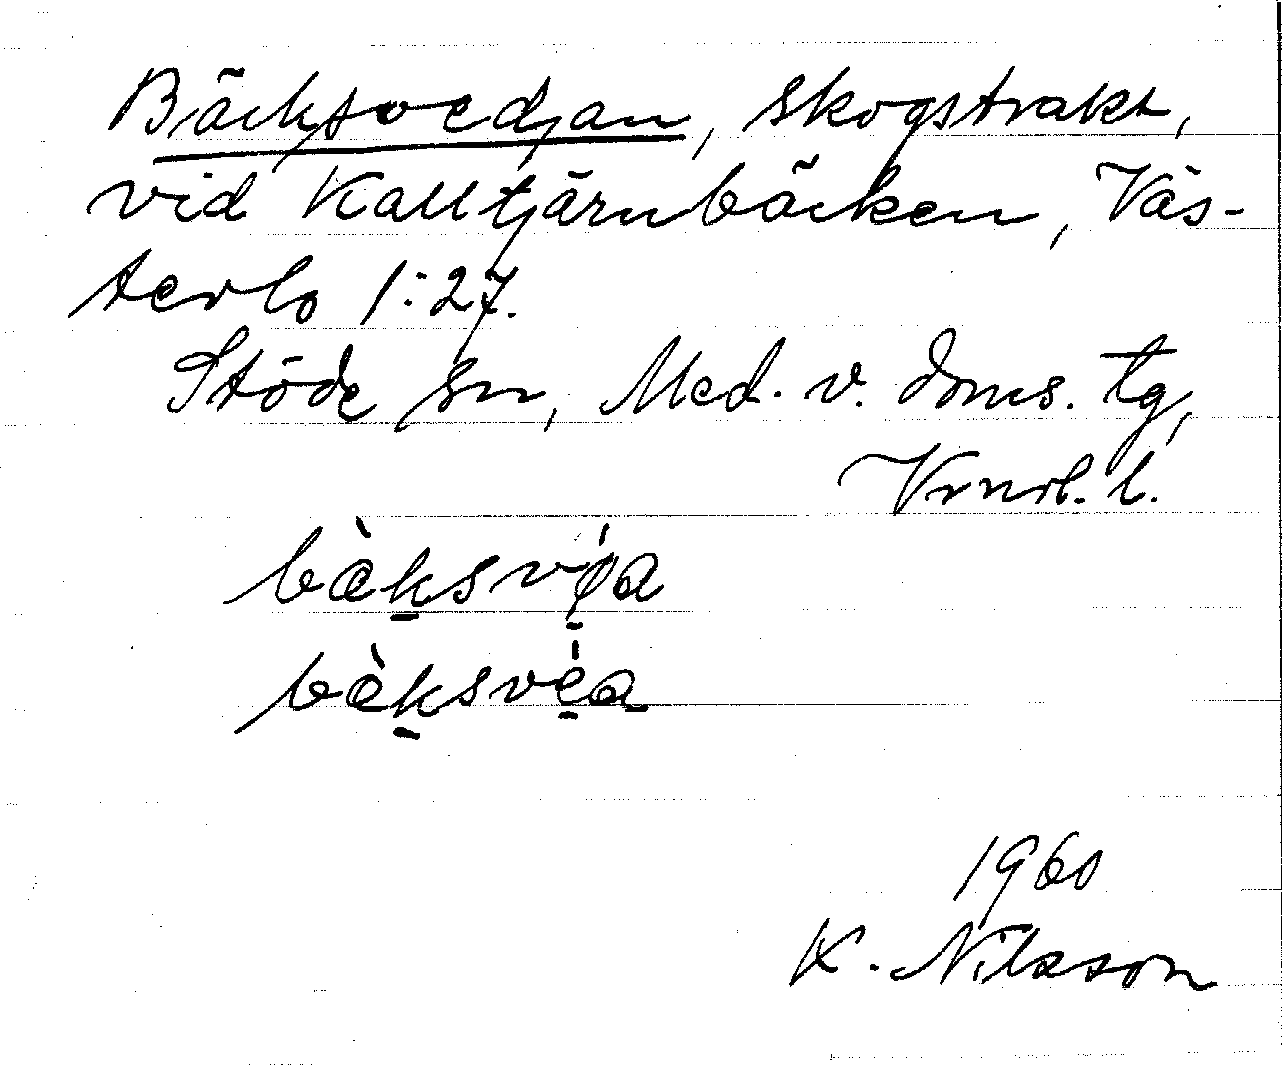 Bäcksvedjan, skogstrakt,
vid Kalltjärnbäcken, Väs-
terlo 1:27.
Stöde sn, Med. v. doms. tg,
Vrnrl. l.
bὰksvela
bὰksvea
1960
K. Nilsson